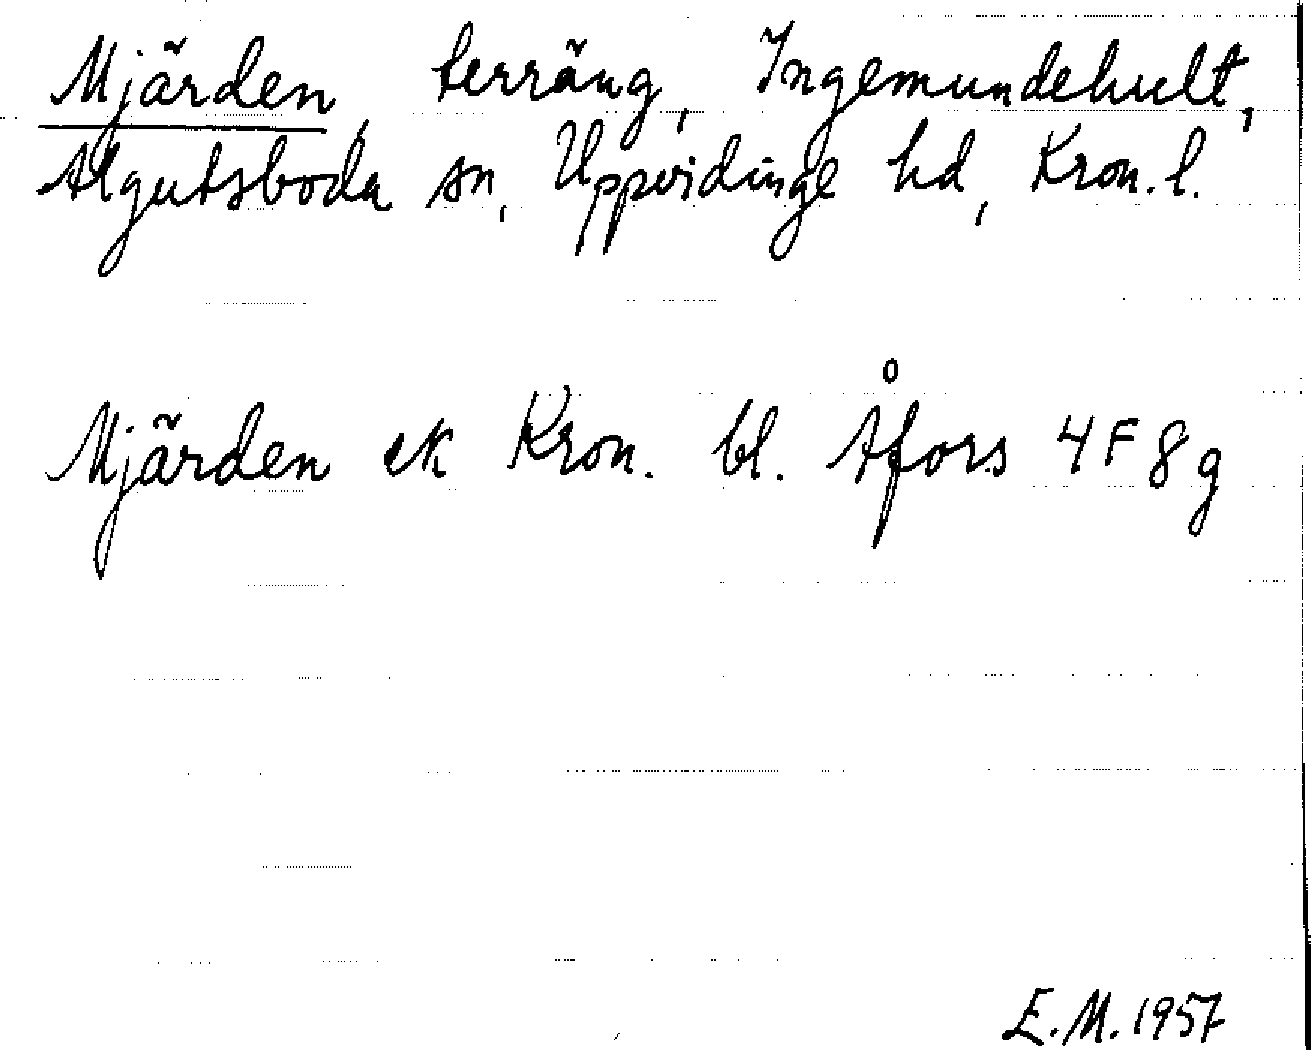 Mjärden terräng, Ingemundehult,
Algutsboda sn, Uppvidinge hd, Kron. l.
Mjärden ek Kron. bl. Åfors 4F 8g
E.M. 1957